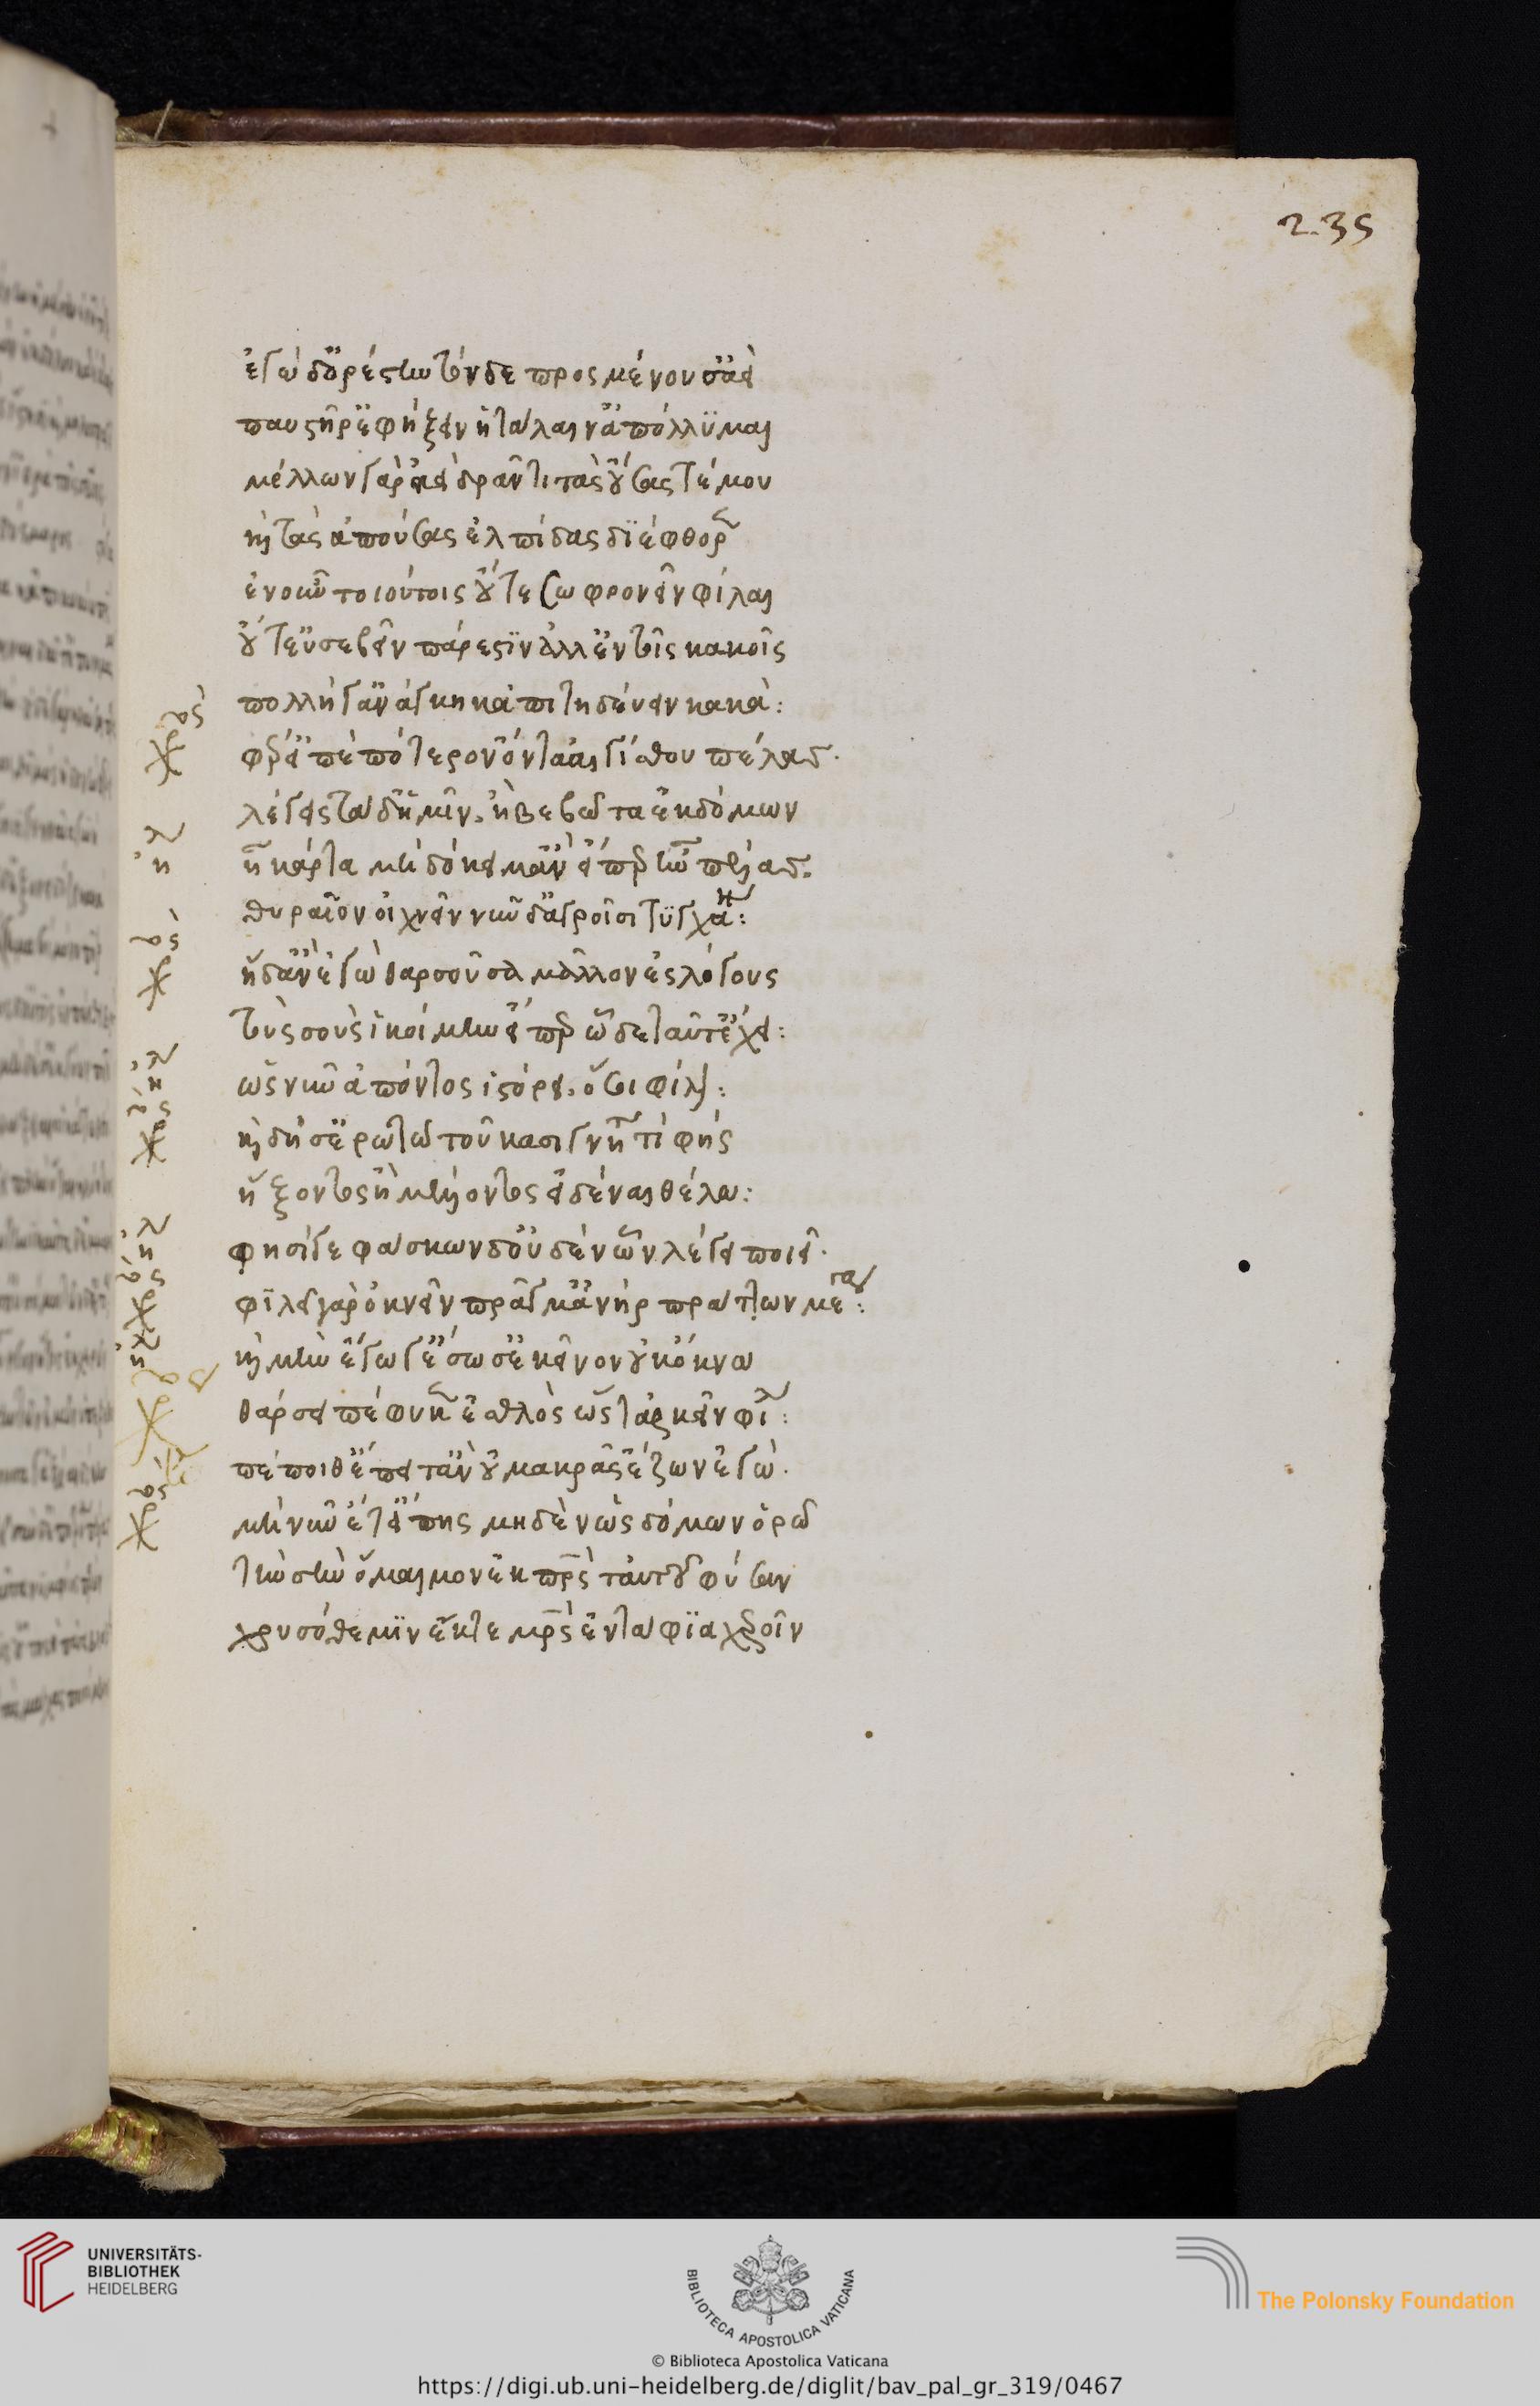 235
ἐγὼ δ' ὀρέστην τόνδε προσμένουσ' ἀεὶ
παυστῆρ' ἐφήξειν ἡ τάλαιν' ἀπόλλυμαι
μέλλων γὰρ ἀεὶ δρᾶν τι τὰς οὔσας τέ μου
καὶ τὰς ἀπούσας ἐλπίδας διέφθορε
ἐν οὖν τοιούτοις οὔτε σωφρονεῖν φίλαι
οὔτ' εὐσεβεῖν πάρεστιν ἀλλ' ἐν τοῖς κακοῖς
πολλὴ γ' ἀνάγκη κἀπιτηδεύειν κακά:
χορ
φέρ' εἰπὲ πότερον ὄντος αἰγίσθου πέλας·
λέγεις τάδ' ἡμῖν. ἢ βεβῶτος ἐκ δόμων
ηλ
ἦ κάρτα μὴ δόκει μ' ἂν εἴπερ ἦν πέλας.
θυραῖον οἰχνεῖν νῦν δ' ἀγροῖσι τυγχάνει:
χορ
ἦ δ' ἂν ἐγὼ θαρσοῦσα μᾶλλον ἐς λόγους
τοὺς σοὺς ἱκοίμην εἴπερ ὧδε ταῦτ' ἔχει:
ηλ
ὡς νῦν ἀπόντος ἱστόρει. ὅ σοι φίλον:
χορ
καὶ δή σ' ἐρωτῶ τοῦ κασιγνήτου τί φῄς
ἥξοντος ἢ μέλλοντος εἰδέναι θέλω:
ηλ
φησί γε φάσκων δ' οὐδὲν ὧν λέγει ποιεῖ·
χορ
φιλεῖ γὰρ ὀκνεῖν πρᾶγμ' ἀνὴρ πράττων μέγα:
ηλ
καὶ μὴν ἔγωγ' ἔσωσ' ἐκεῖνον οὐκ ὄκνῳ
χορ
θάρσει πέφυκεν ἐσθλὸς ὥστ' ἀρκεῖν φίλοις:
ηλ
πέποιθ' ἐπεί τἂν οὐ μακρὰς ἔζων ἐγώ·
χορ
μὴ νῦν ἔτ' εἴπῃς μηδὲν ὡς δόμων ὁρῶ
τὴν σὴν ὅμαιμον ἐκ πατρὸς ταὐτοῦ φύσιν
χρυσόθεμιν ἔκ τε μητρὸς ἐντάφια χεροῖν
UNIVERSITÄTS-
BIBLIOTHEK
HEIDELBERG
BIBLIOTECA APOSTOLICA VATICANA
The Polonsky Foundation
© Biblioteca Apostolica Vaticana
https://digi.ub.uni-heidelberg.de/diglit/bav_pal_gr_319/0467